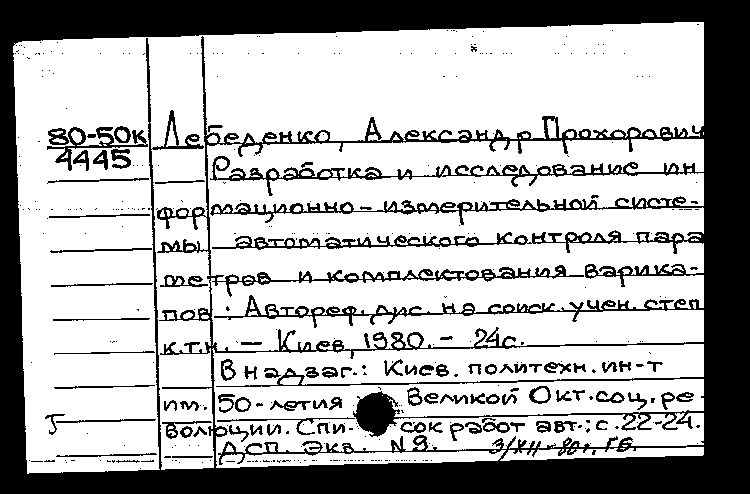 80-50к Лебеденко, Александр Прохорович
4445 Разработка и исследование ин
формационно-измерительной систе-
мы автоматического контроля пара
метров и комплектования варика-
пов: Автореф. дис. на соиск. учен. степ
к.т.н. — Киев, 1980. - 24с.
В надзаг.: Киев. политехн. ин-т
им. 50-летия Великой Окт. соц. ре-
волюции. Спи- сок работ авт.: с. 22-24.
ДСП. Экз. №9. 3/XII-80г.